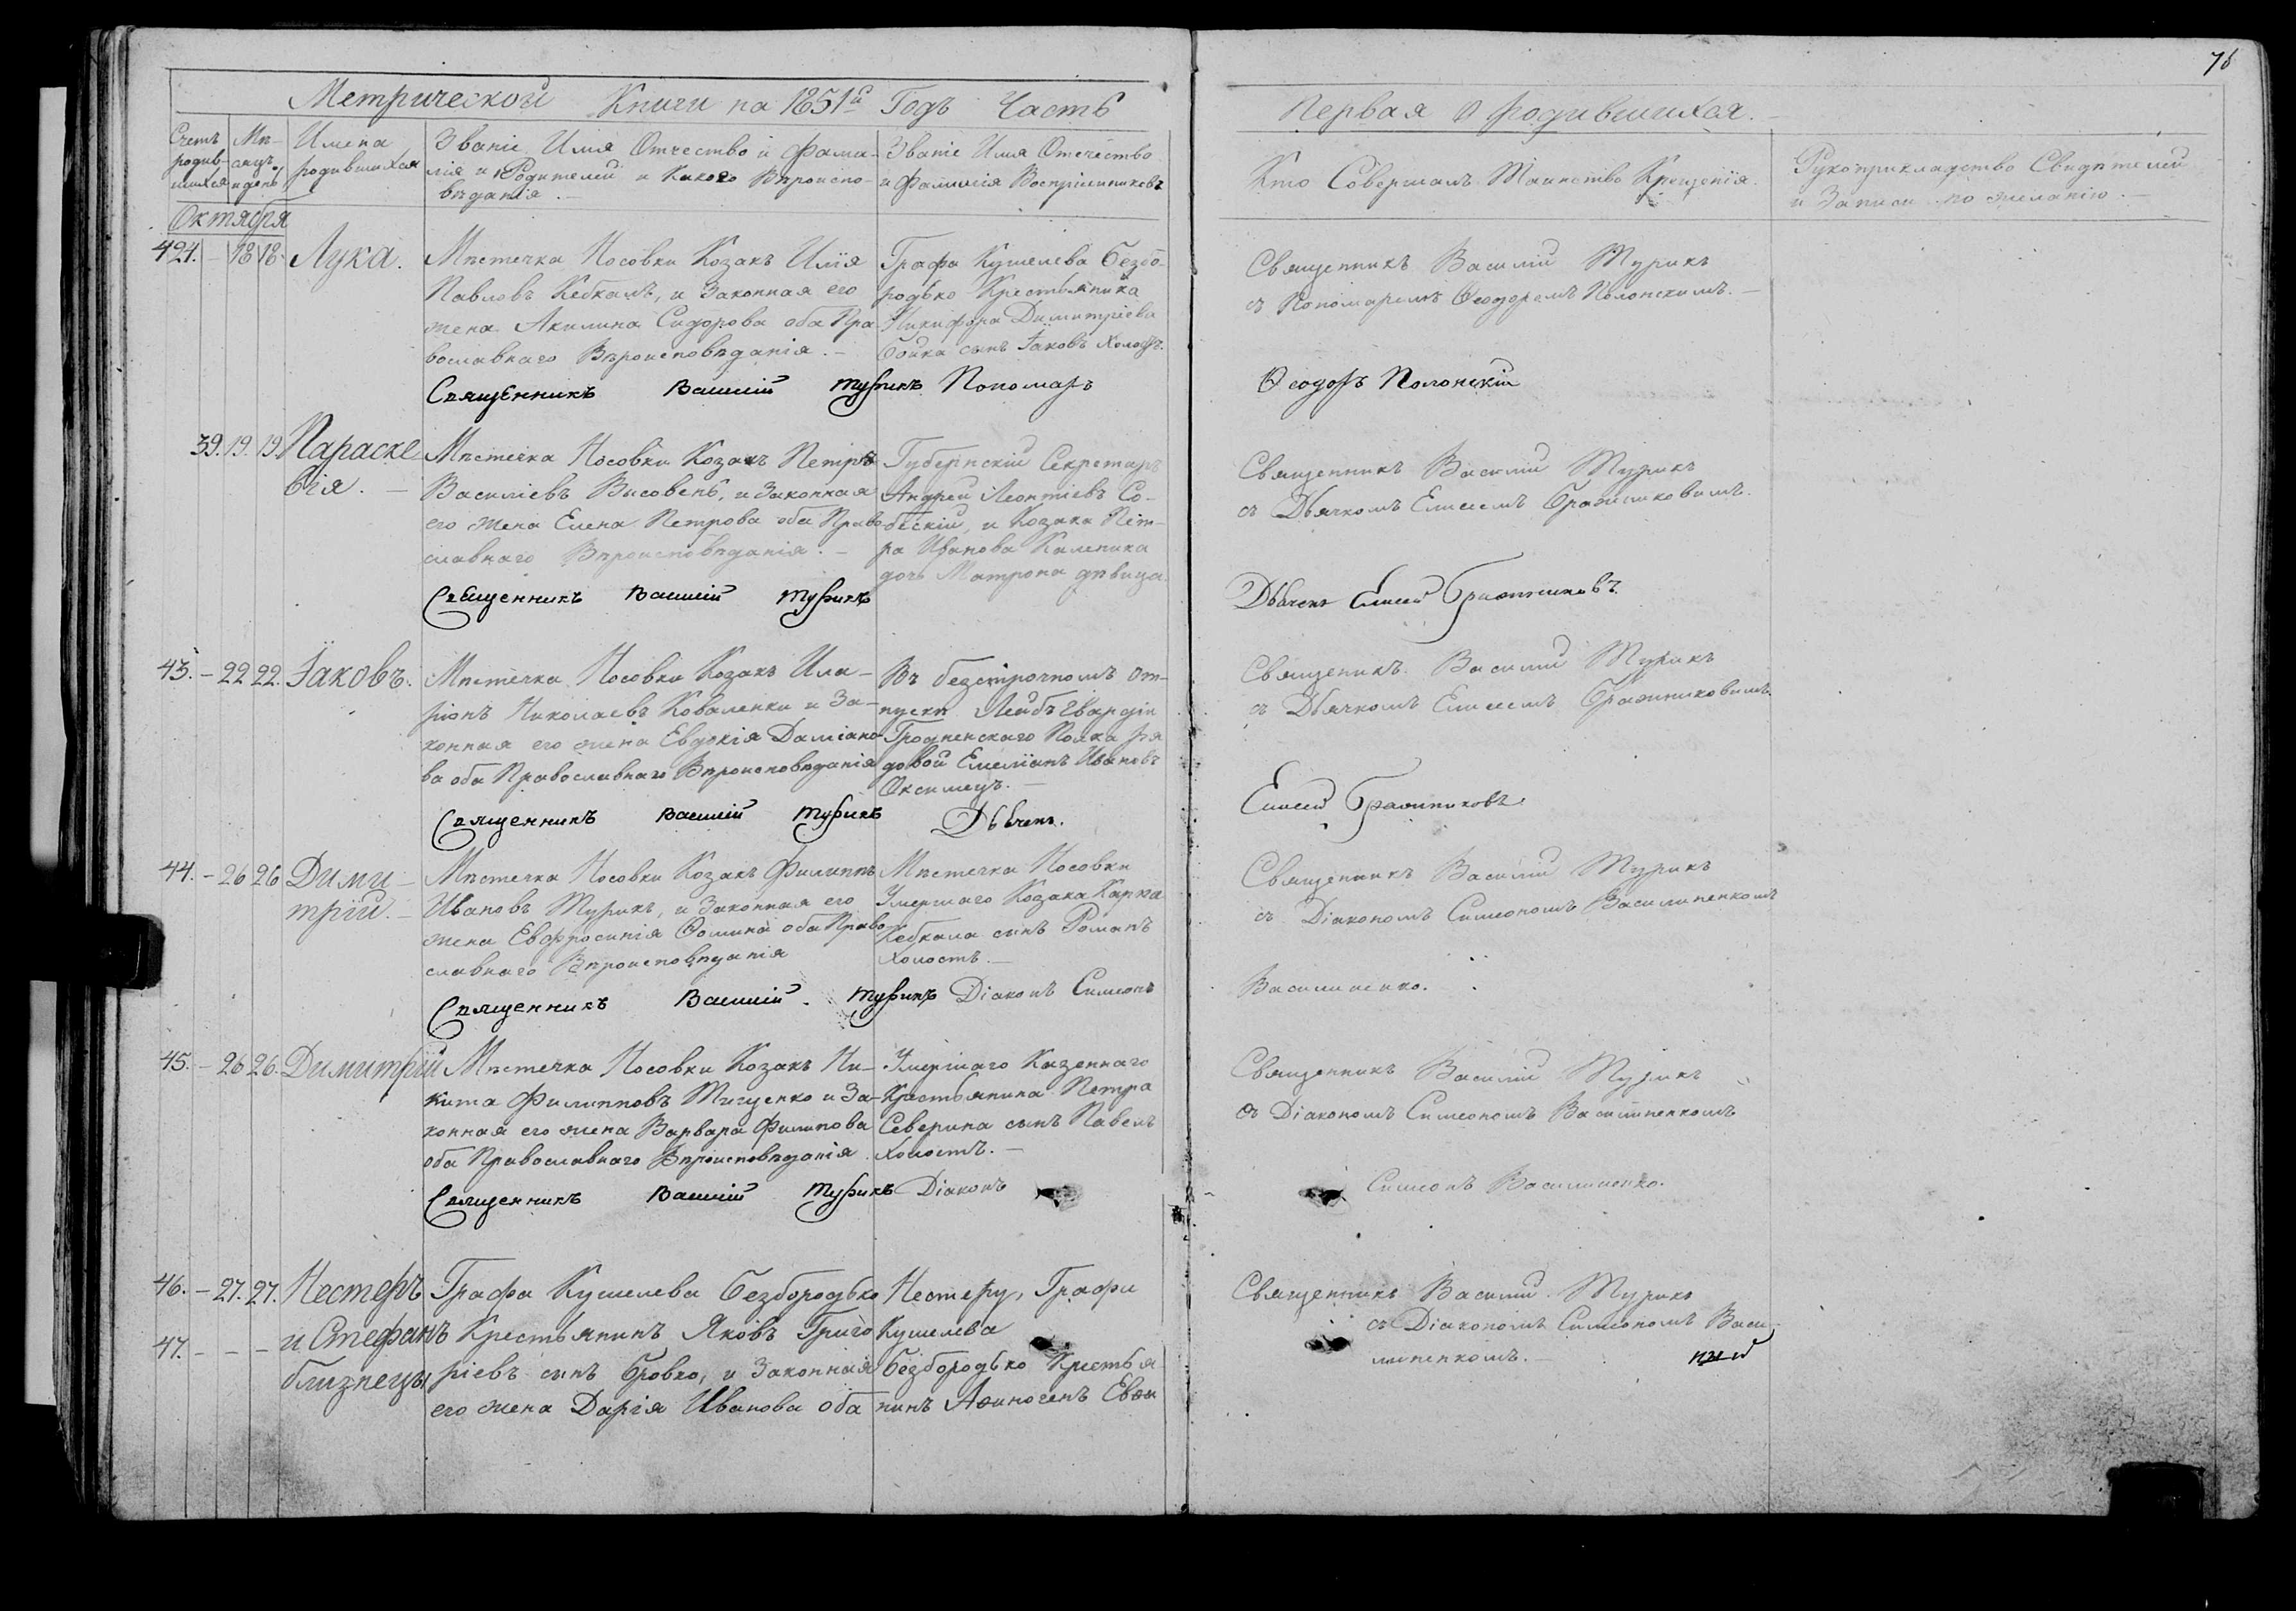 76
Метрической Книги на 1851й Годъ Часть
Первая О родившихся.
Счетъ родив-шихся
Мѣ-сяцъ и день
Имена родившихся
Званіе Имя Отчество и Фами-
лія Родителей и Какого Вѣроиспо-
вѣданія.
Званіе Имя Отечество
и Фамилія Воспріемниковъ
Кто Совершалъ Таинство Крещенія.
Рукоприкладство Свидѣтелей
и Записи по желанію.
Октября
18 18. Лука.
Мѣстечка Носовки Козакъ Илія
Павловъ Кебкалъ, и Законная его
жена Акилина Сидорова оба Пра-
вославнаго Вѣроисповѣданія.
Графа Кушелева Безбо-
родько Крестьянина
Никифора Димитріева
Бойка сынъ Іаковъ Холостъ.
Священникъ Василій Турикъ
съ Пономаремъ Ѳеодоромъ Полонскимъ.
Священникъ Василій Турикъ Пономарь
Ѳеодоръ Полонскій
39. 19. 19. Параске-
вія.
Мѣстечка Носовки Козакъ Петръ
Василіевъ Высовень, и Законная
его жена Елена Петрова оба Право-
славнаго Вѣроисповѣданія.
Губернскій Секретарь
Андрей Леонтіевъ Со-
бескій, и Козака Пет-
ра Иванова Каленика
дочь Матрона дѣвица.
Священникъ Василій Турикъ
съ Дьячкомъ Елисеемъ Бражниковымъ.
Священникъ Василій Турикъ
Дьячекъ Елисей Бражниковъ.
43. – 22 22. Іаковъ.
Мѣстечка Носовки Козакъ Ила-
ріонъ Николаевъ Коваленко и За-
конная его жена Евдокія Даміано-
ва оба Православнаго Вѣроисповѣданія
Въ безсрочномъ от-
пуску Лейбъ Гвардіи
Гродненскаго Полка ря
довой Емеліянъ Ивановъ
Оксимецъ.
Священикъ Василій Турикъ
съ Дьячкомъ Елисеемъ Бражниковымъ.
Священникъ Василій Турикъ Дьячекъ.
Елисей Бражниковъ.
44. – 26 26 Дими-
трій.
Мѣстечка Носовки Козакъ Филиппъ
Ивановъ Турикъ, и Законная его
жена Евфросинія Ѳомина оба Право-
славнаго Вѣроисповѣданія
Мѣстечка Носовки
Умершаго Козака Карпа
Кебкала сынъ Романъ
Холостъ.
Священникъ Василій Турикъ
съ Діакономъ Симеономъ Василиненкомъ
Священникъ Василій Турикъ Діаконъ Симеонъ
Василиненко.
45. – 26 26. Димитрій
Мѣстечка Носовки Козакъ Ни-
кита Филипповъ Тищенко и За-
конная его жена Варвара Филипова
оба Православнаго Вѣроисповѣданія.
Умершаго Казеннаго
Крестьянина Петра
Северина сынъ Павелъ
Холостъ.
Священникъ Василій Турикъ
съ Діакономъ Симеономъ Василиненкомъ
Священникъ Василій Турикъ Діаконъ
Симеонъ Василиненко.
46. – 27. 27. Нестеръ
47. – – – и Стефанъ
близнецы
Графа Кушелева Безбородько
Крестьянинъ Яковъ Григо
ріевъ сынъ Бровко, и Законная
его жена Дарія Иванова оба
Нестеру, Графа
Кушелева
Безбородько Крестья-
нинъ Аѳиногенъ Евѳи
Священникъ Василій Турикъ
съ Діакономъ Симеономъ Васи-
линенкомъ.